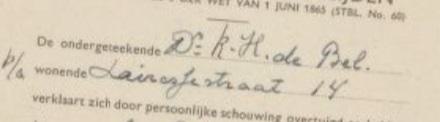 DER WET VAN 1 JUNI 1865 (STBL. No. 60)
De ondergeteekende Dr. K. H. de Bel.
p/a wonende Lairessestraat 14
verklaart zich door persoonlijke schouwing overtuigd